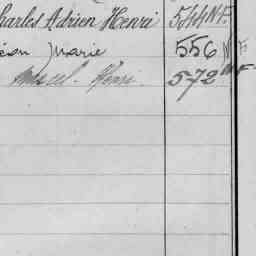 Charles Adrien Henri 544 N.F.
Léon Marie 556 N F
Marcel Henri 572 N F